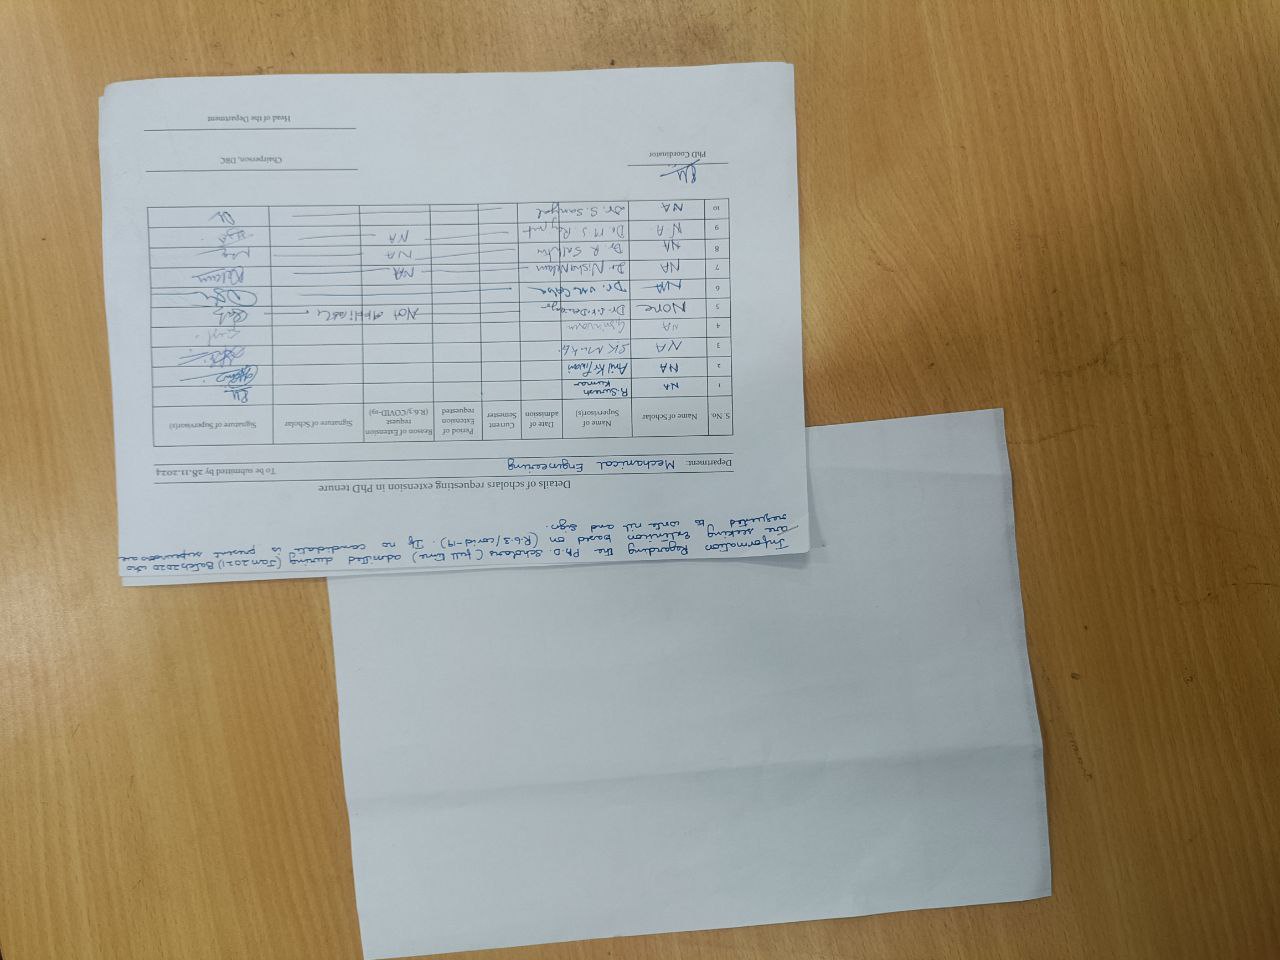 Information Regarding the Ph.D. Scholars (full time) admitted during (Jan 2021) Batch 2020 who
are seeking Extention based on (R.6.3/covid-19). If no candidate is present supervisors are
requested to write nil and sign.
Details of scholars requesting extension in PhD tenure
Department: Mechanical Engineering To be submitted by 28.11.2024
S. No. Name of Scholar Name of Supervisor(s) Date of admission Current Semester Period of Extension requested Reason of Extension request (R.6.3/COVID-19) Signature of Scholar Signature of Supervisor(s)
1 NA R. Suresh Kumar
2 NA Anil Kr
3 NA SK
4 NA
5 None Dr. Not Applicable
6 N/A Dr.
7 NA Dr NA
8 NA Dr. R. NA
9 N A Dr M S NA
10 NA Dr. S. Sanyal
PhD Coordinator Chairperson, DRC
Head of the Department